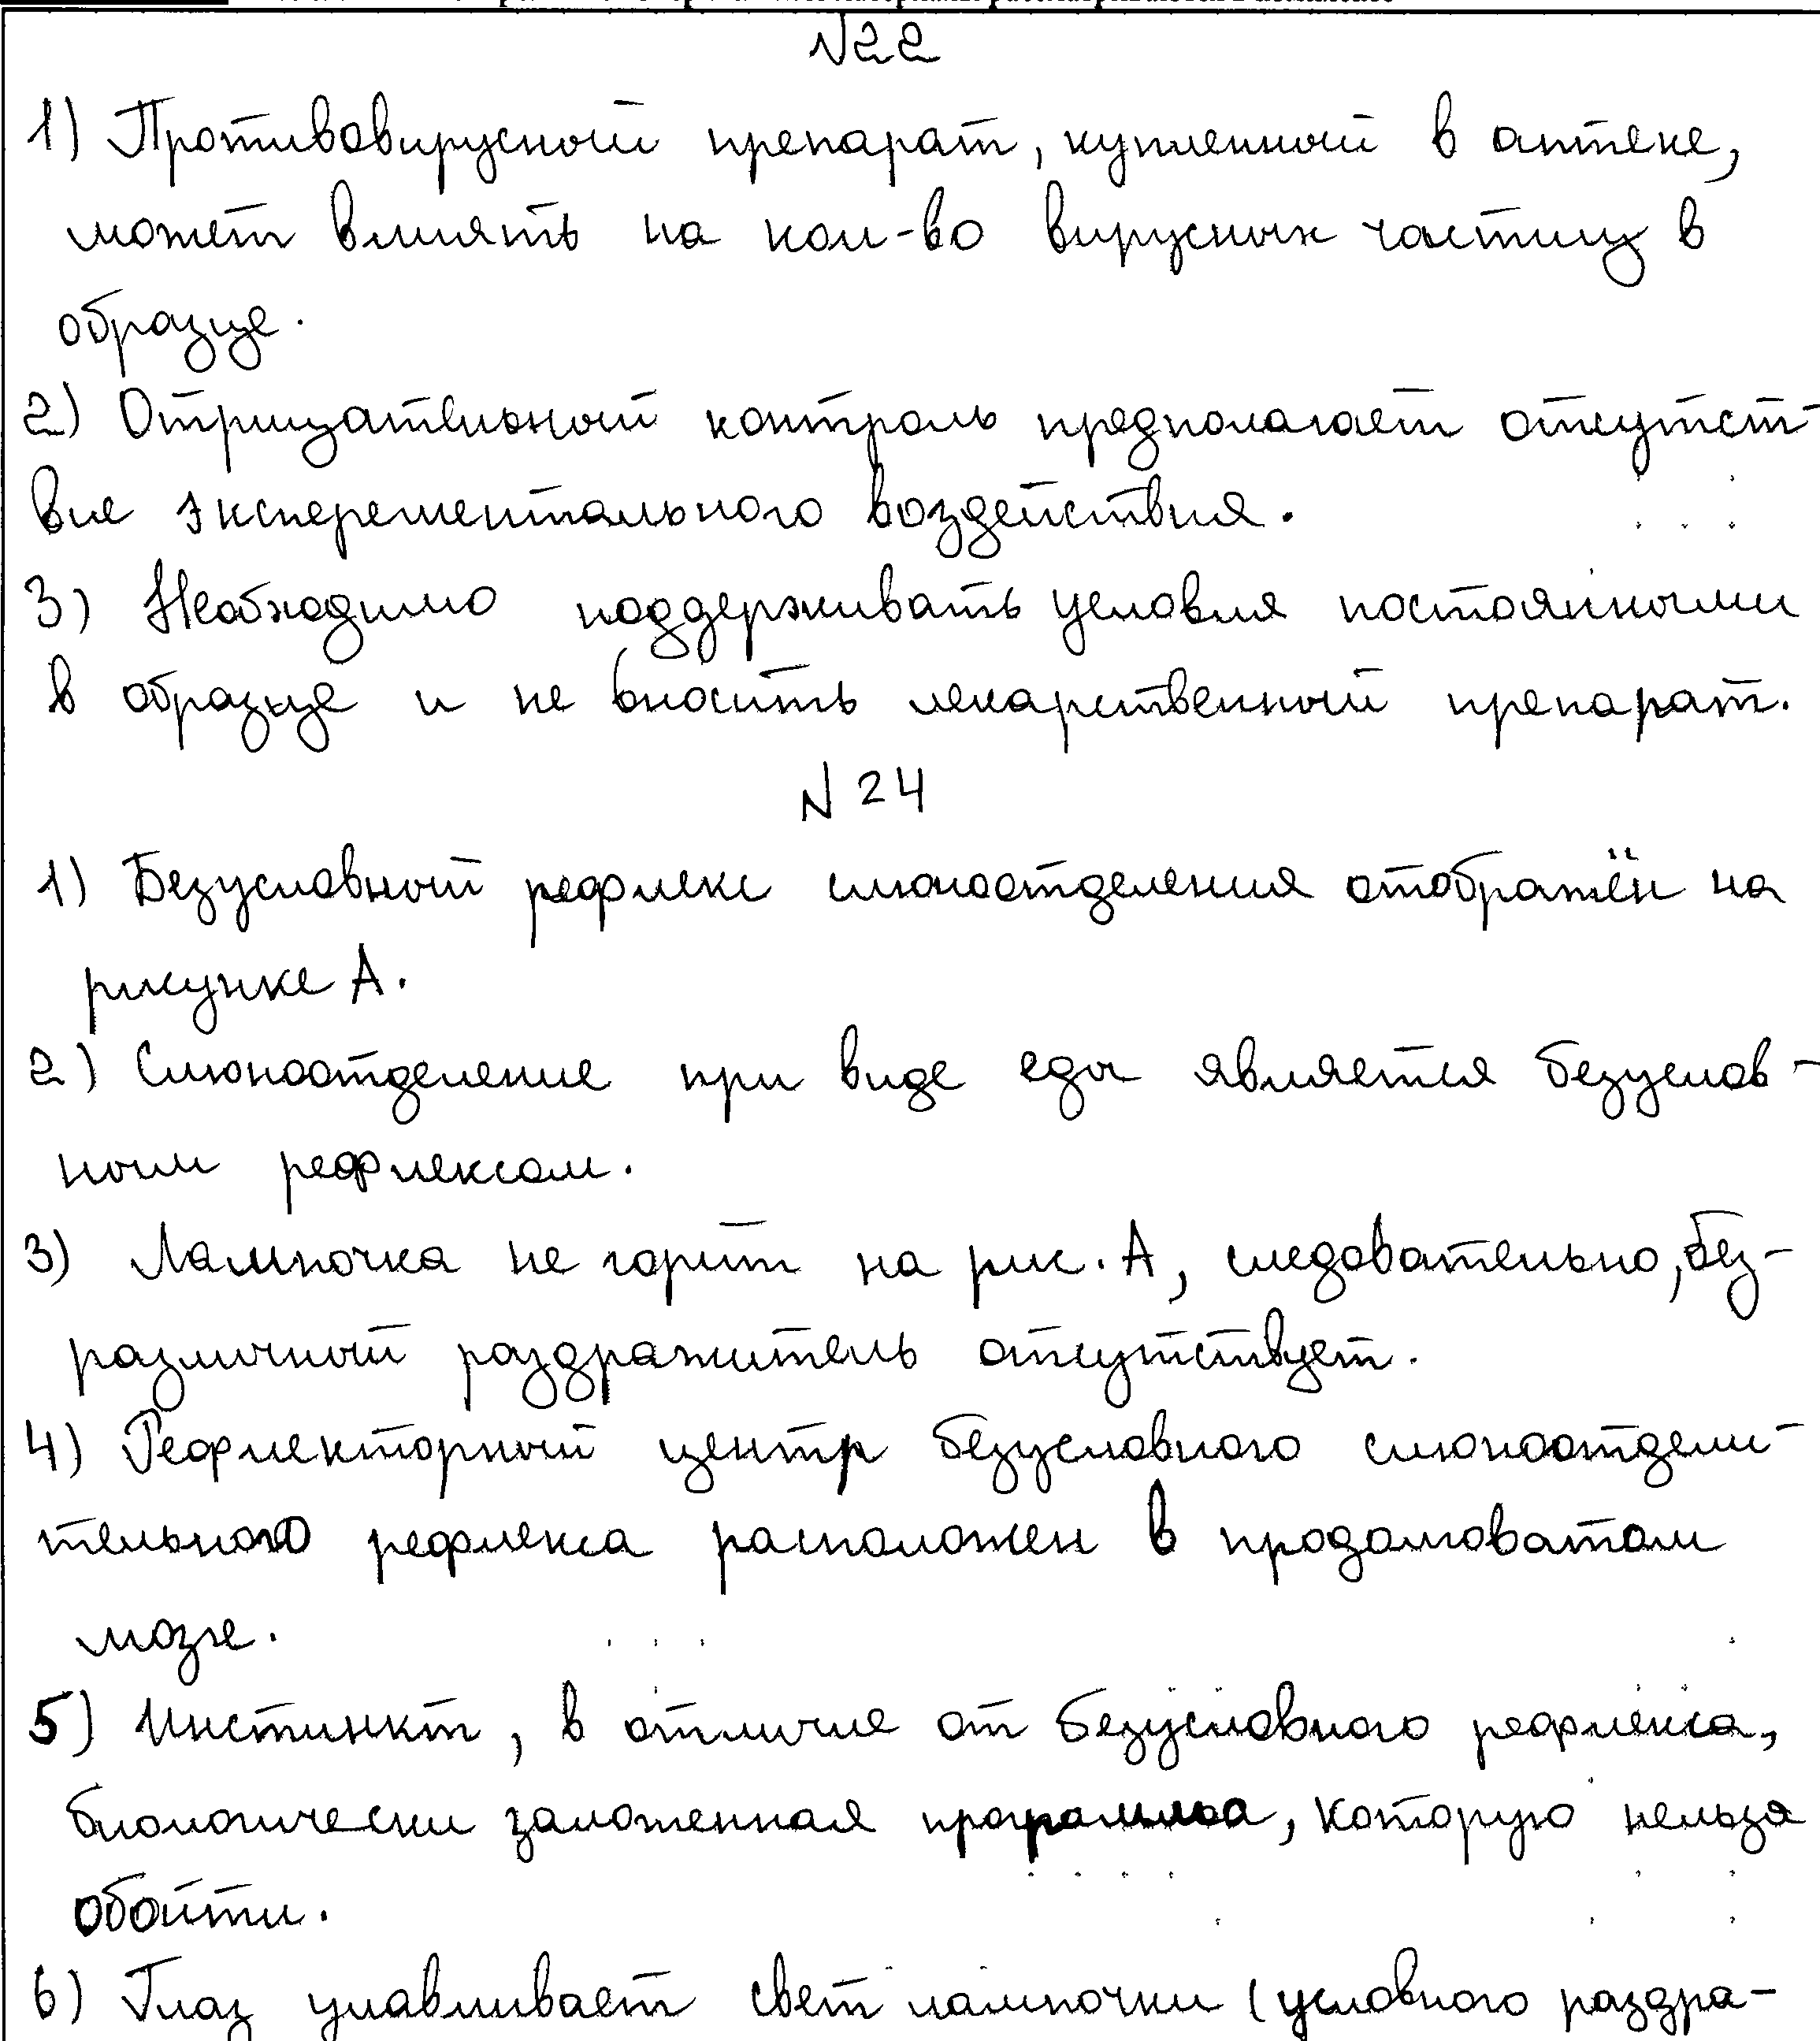 N22
1) Противовирусный препарат, купленный в аптеке,
может влиять на кол-во вирусных частиц в
образце.
2) Отрицательный контроль предполагает отсутст
вие эксперементального воздействия.
3) Необходимо поддерживать условия постоянными
в образце и не вносить лекарственный препарат.
N 24
1) Безусловный рефлекс слюноотделения отображён на
рисунке А.
2) Слюноотделение при виде еды является безуслов-
ным рефлексом.
3) Лампочка не горит на рис. А, следовательно, без-
различный раздражитель отсутствует.
4) Рефлекторный центр безусловного слюноотдели-
тельного рефлекса расположен в продолговатом
мозге.
5) Инстинкт, в отличие от безусловного рефлекса,
биологически заложенная программа, которую нельзя
обойти.
6) Глаз улавливает свет лампочки (условного раздра-